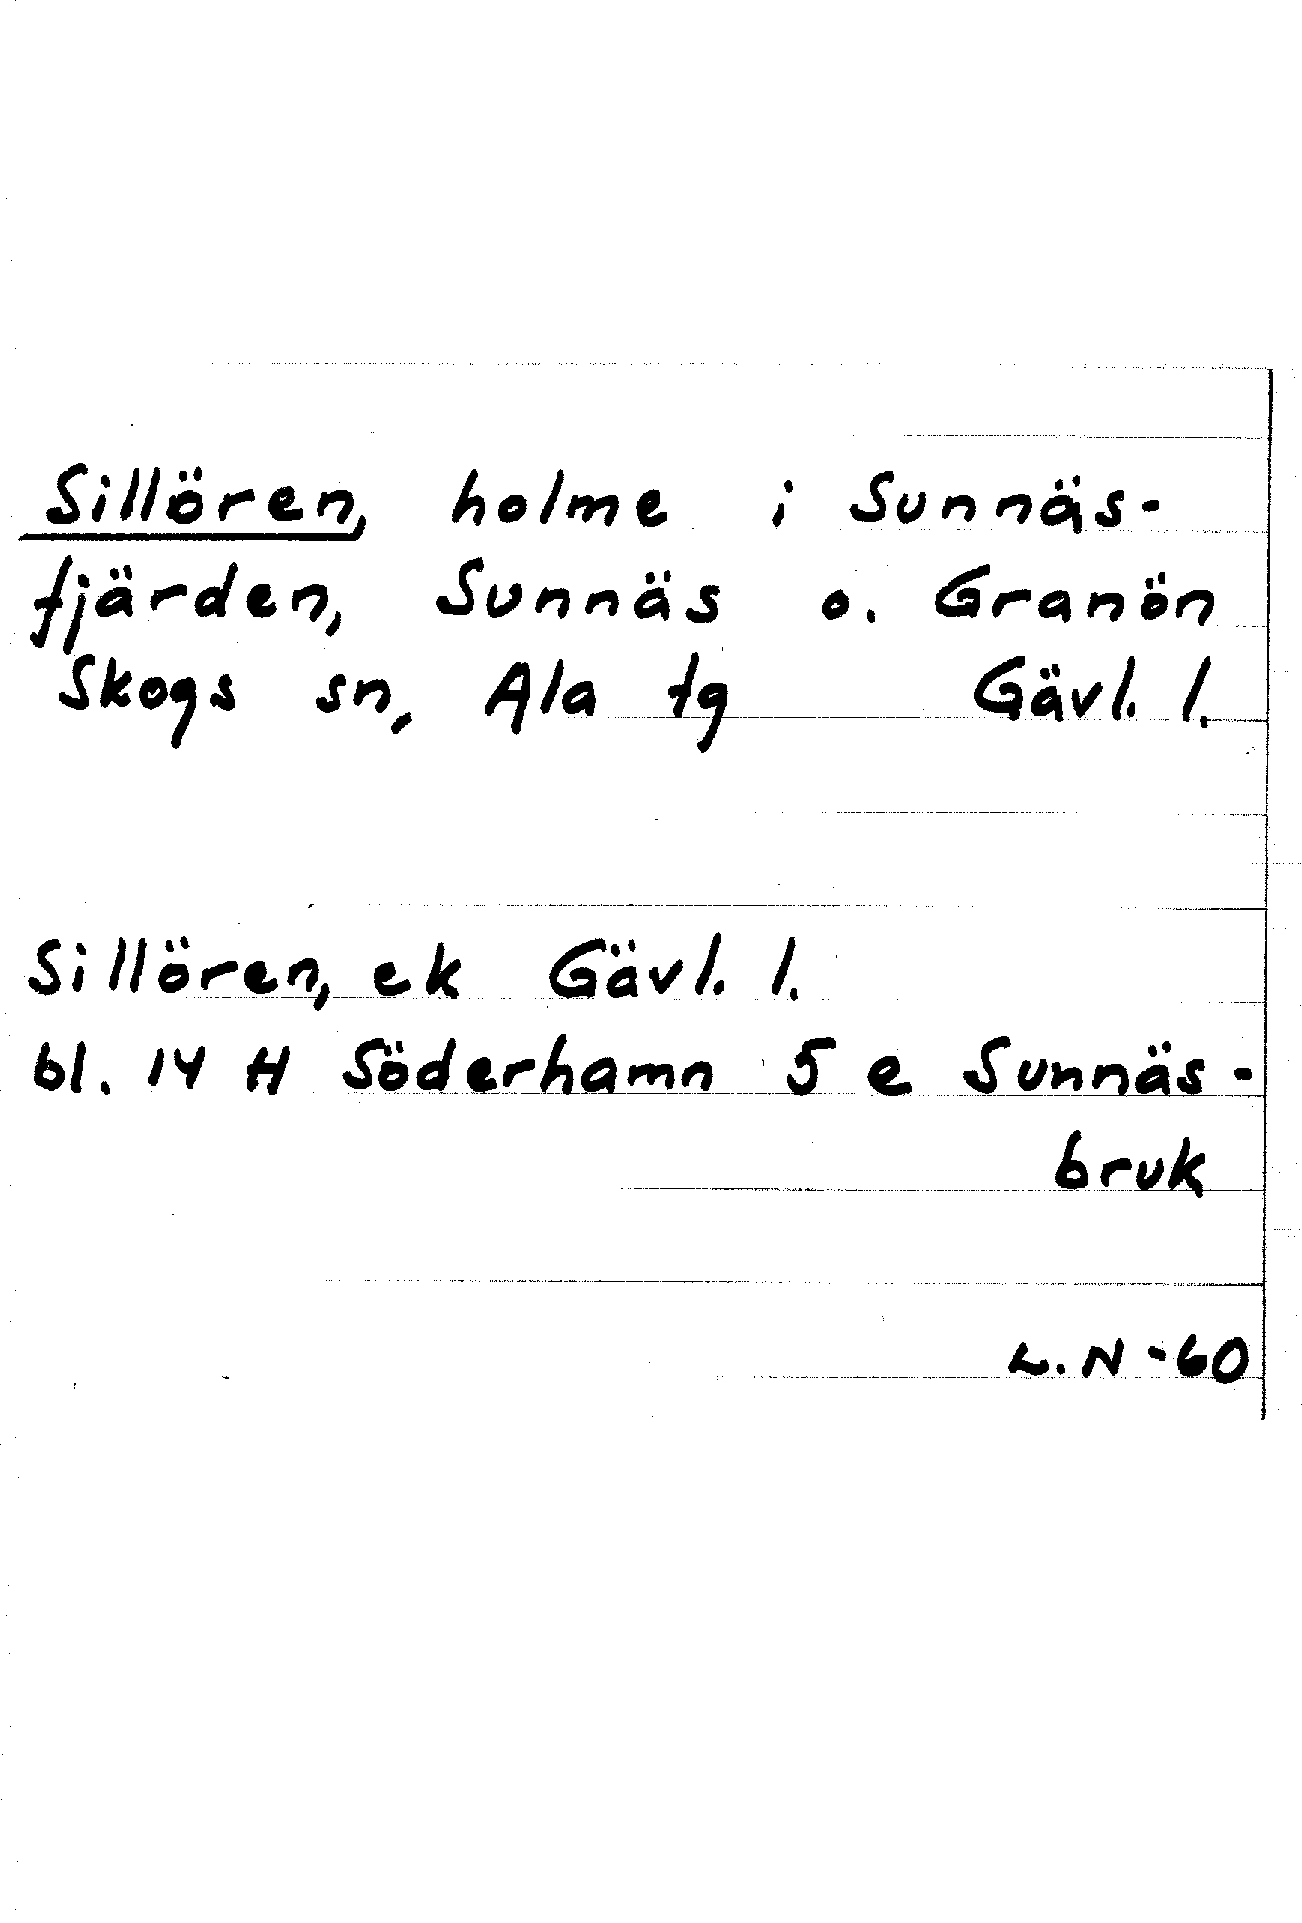 Sillören, holme i Sunnäs-
fjärden, Sunnäs o. Granön
Skogs sn, Ala tg Gävl. l.
Sillören, ek Gävl. l.
bl. 14 H Söderhamn 5 e Sunnäs-
bruk
L. N -60